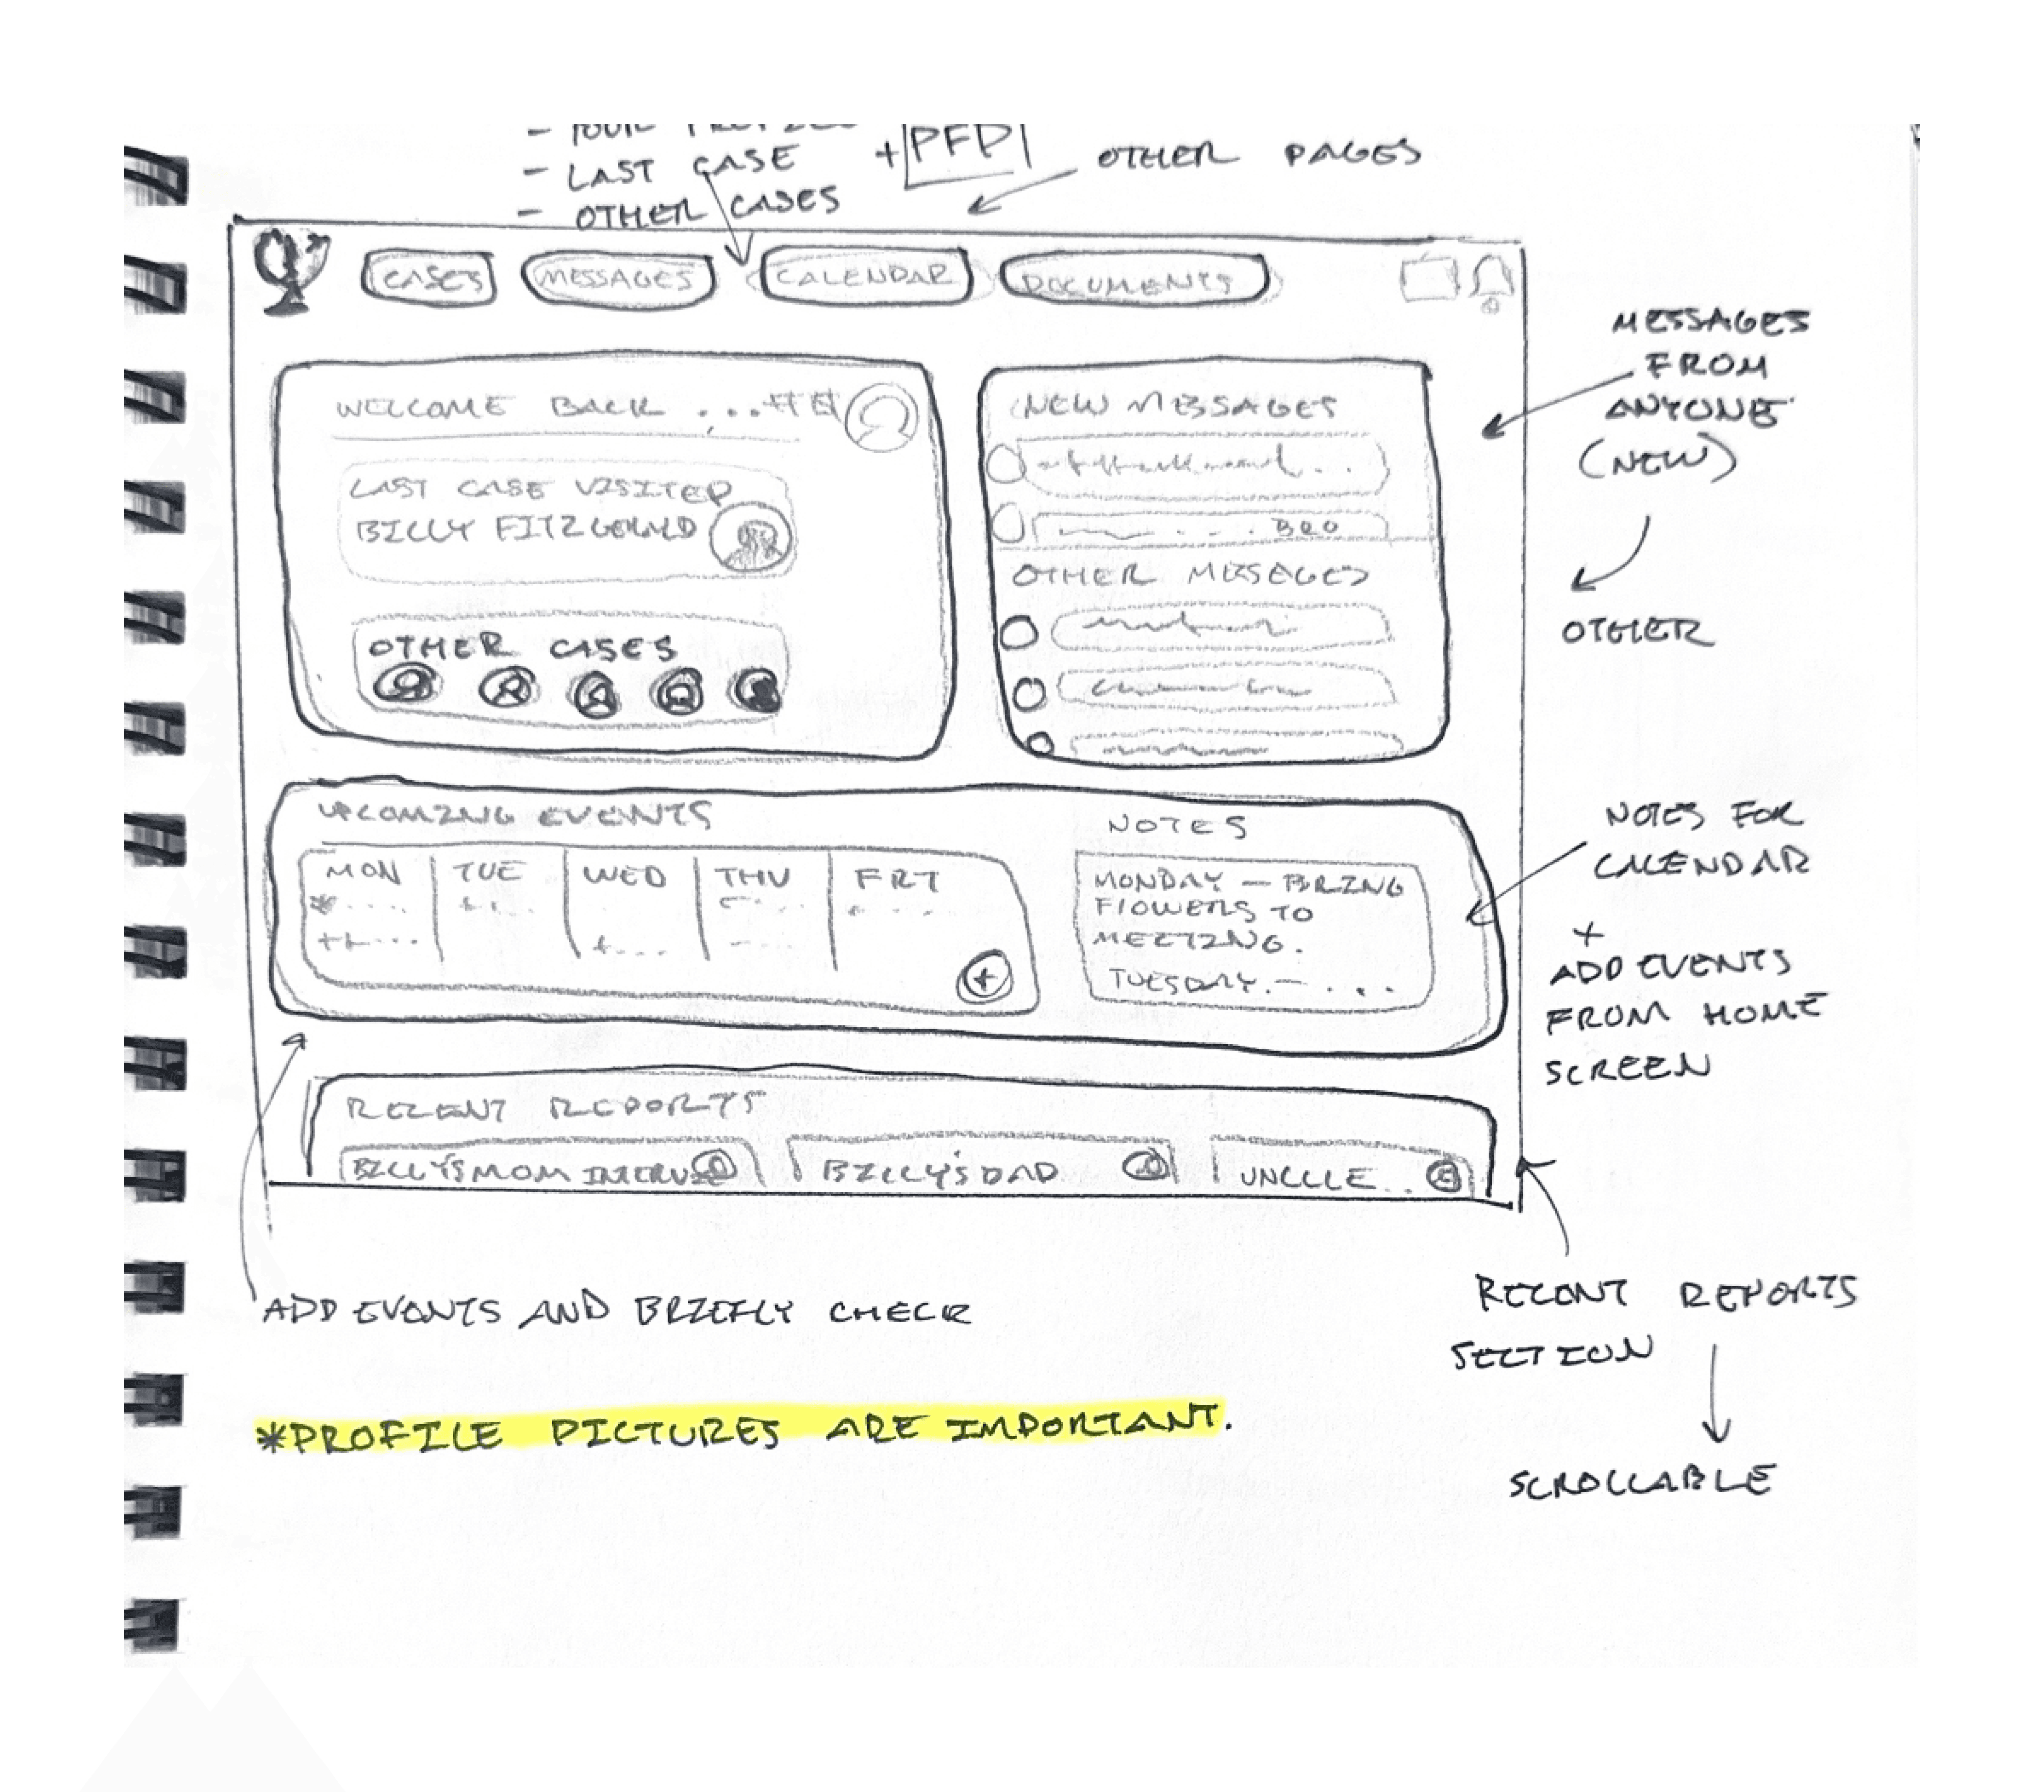 - LAST CASE
- OTHER CASES
+ PFP
OTHER PAGES
CASES
MESSAGES
CALENDAR
DOCUMENTS
WELCOME BACK ...
LAST CASE VISITED
BILLY FITZGERALD
OTHER CASES
NEW MESSAGES
OTHER MESSAGES
MESSAGES
FROM
ANYONE
(NEW)
OTHER
UPCOMING EVENTS
MON
TUE
WED
THU
FRI
+
NOTES
MONDAY - BRING
FLOWERS TO
MEETING.
TUESDAY. - ...
NOTES FOR
CALENDAR
+
ADD EVENTS
FROM HOME
SCREEN
RECENT REPORTS
BILLY'S MOM
BILLY'S DAD
UNCLE..
ADD EVENTS AND BRIEFLY CHECK
RECENT REPORTS
SECTION
SCROLLABLE
*PROFILE PICTURES ARE IMPORTANT.